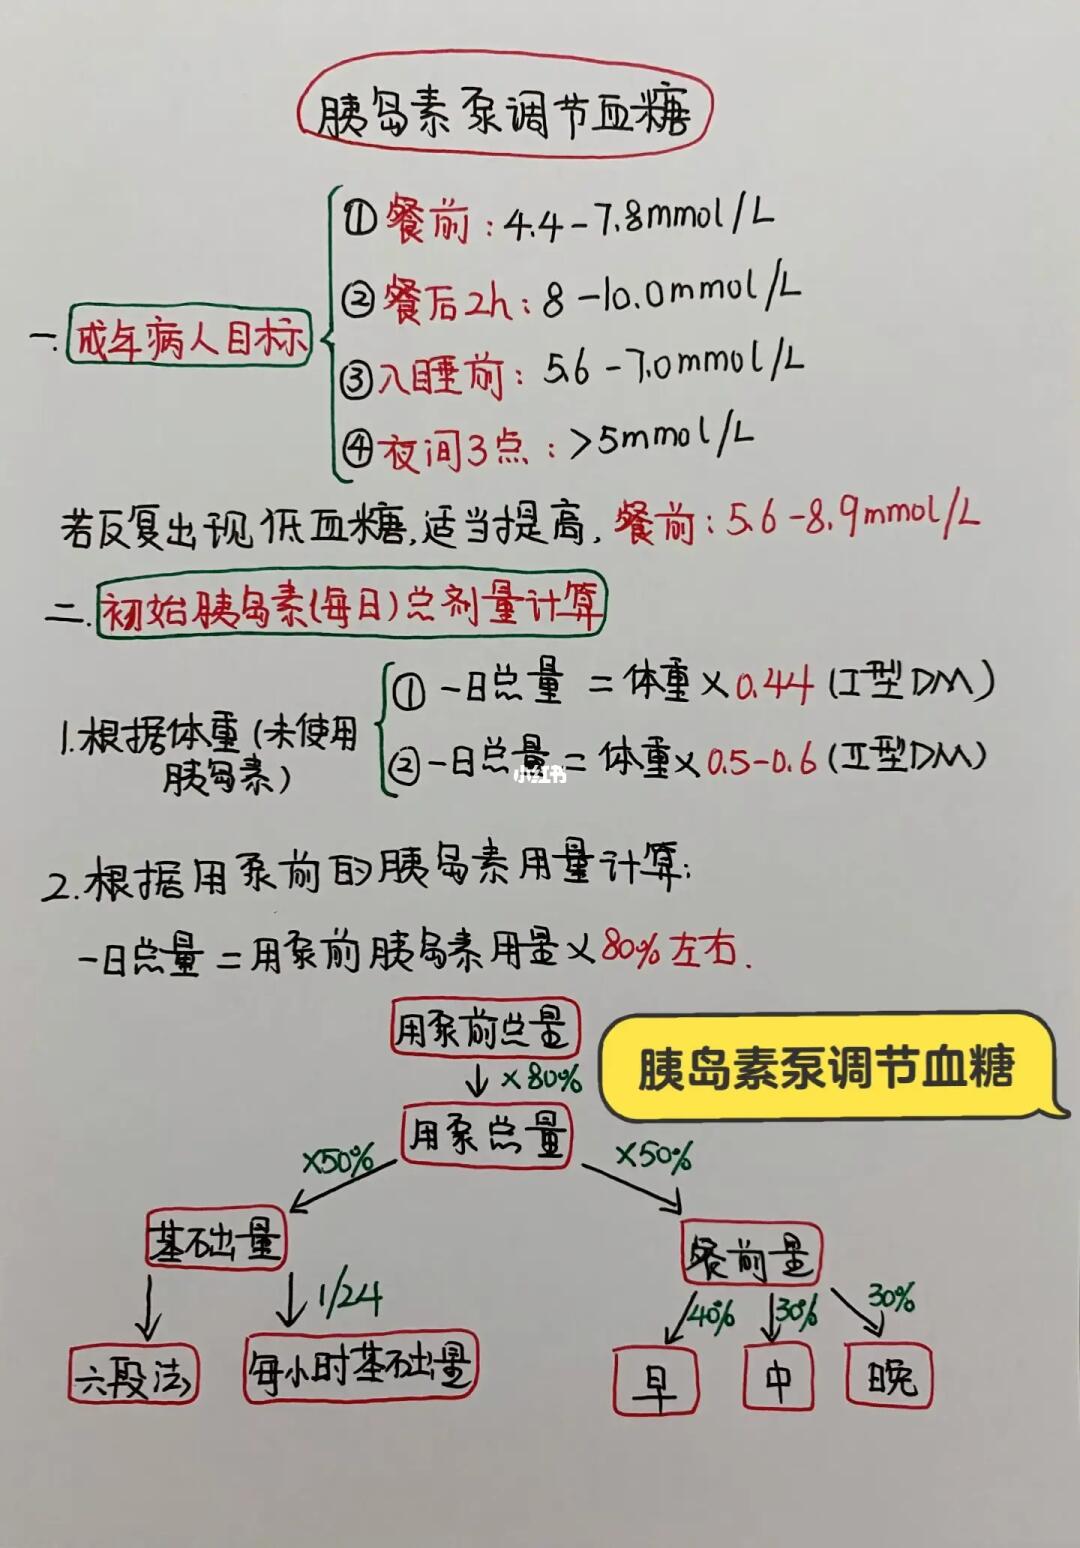 胰岛素泵调节血糖
一.成年病人目标
①餐前:4.4-7.8mmol/L
②餐后2h:8-10.0mmol/L
③入睡前:5.6-7.0mmol/L
④夜间3点:>5mmol/L
若反复出现低血糖,适当提高,餐前:5.6-8.9mmol/L
二.初始胰岛素(每日)总剂量计算
1.根据体重(未使用
胰岛素)
①一日总量=体重×0.44(I型DM)
②一日总量=体重×0.5-0.6(II型DM)
小红书
2.根据用泵前的胰岛素用量计算:
一日总量=用泵前胰岛素用量×80%左右.
用泵前总量
胰岛素泵调节血糖
↓×80%
用泵总量
×50% ×50%
基础量 餐前量
1/24 40% 30% 30%
六段法 每小时基础量 早 中 晚